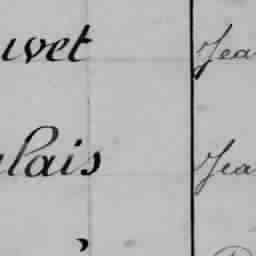 uvet Jea
lais Jea